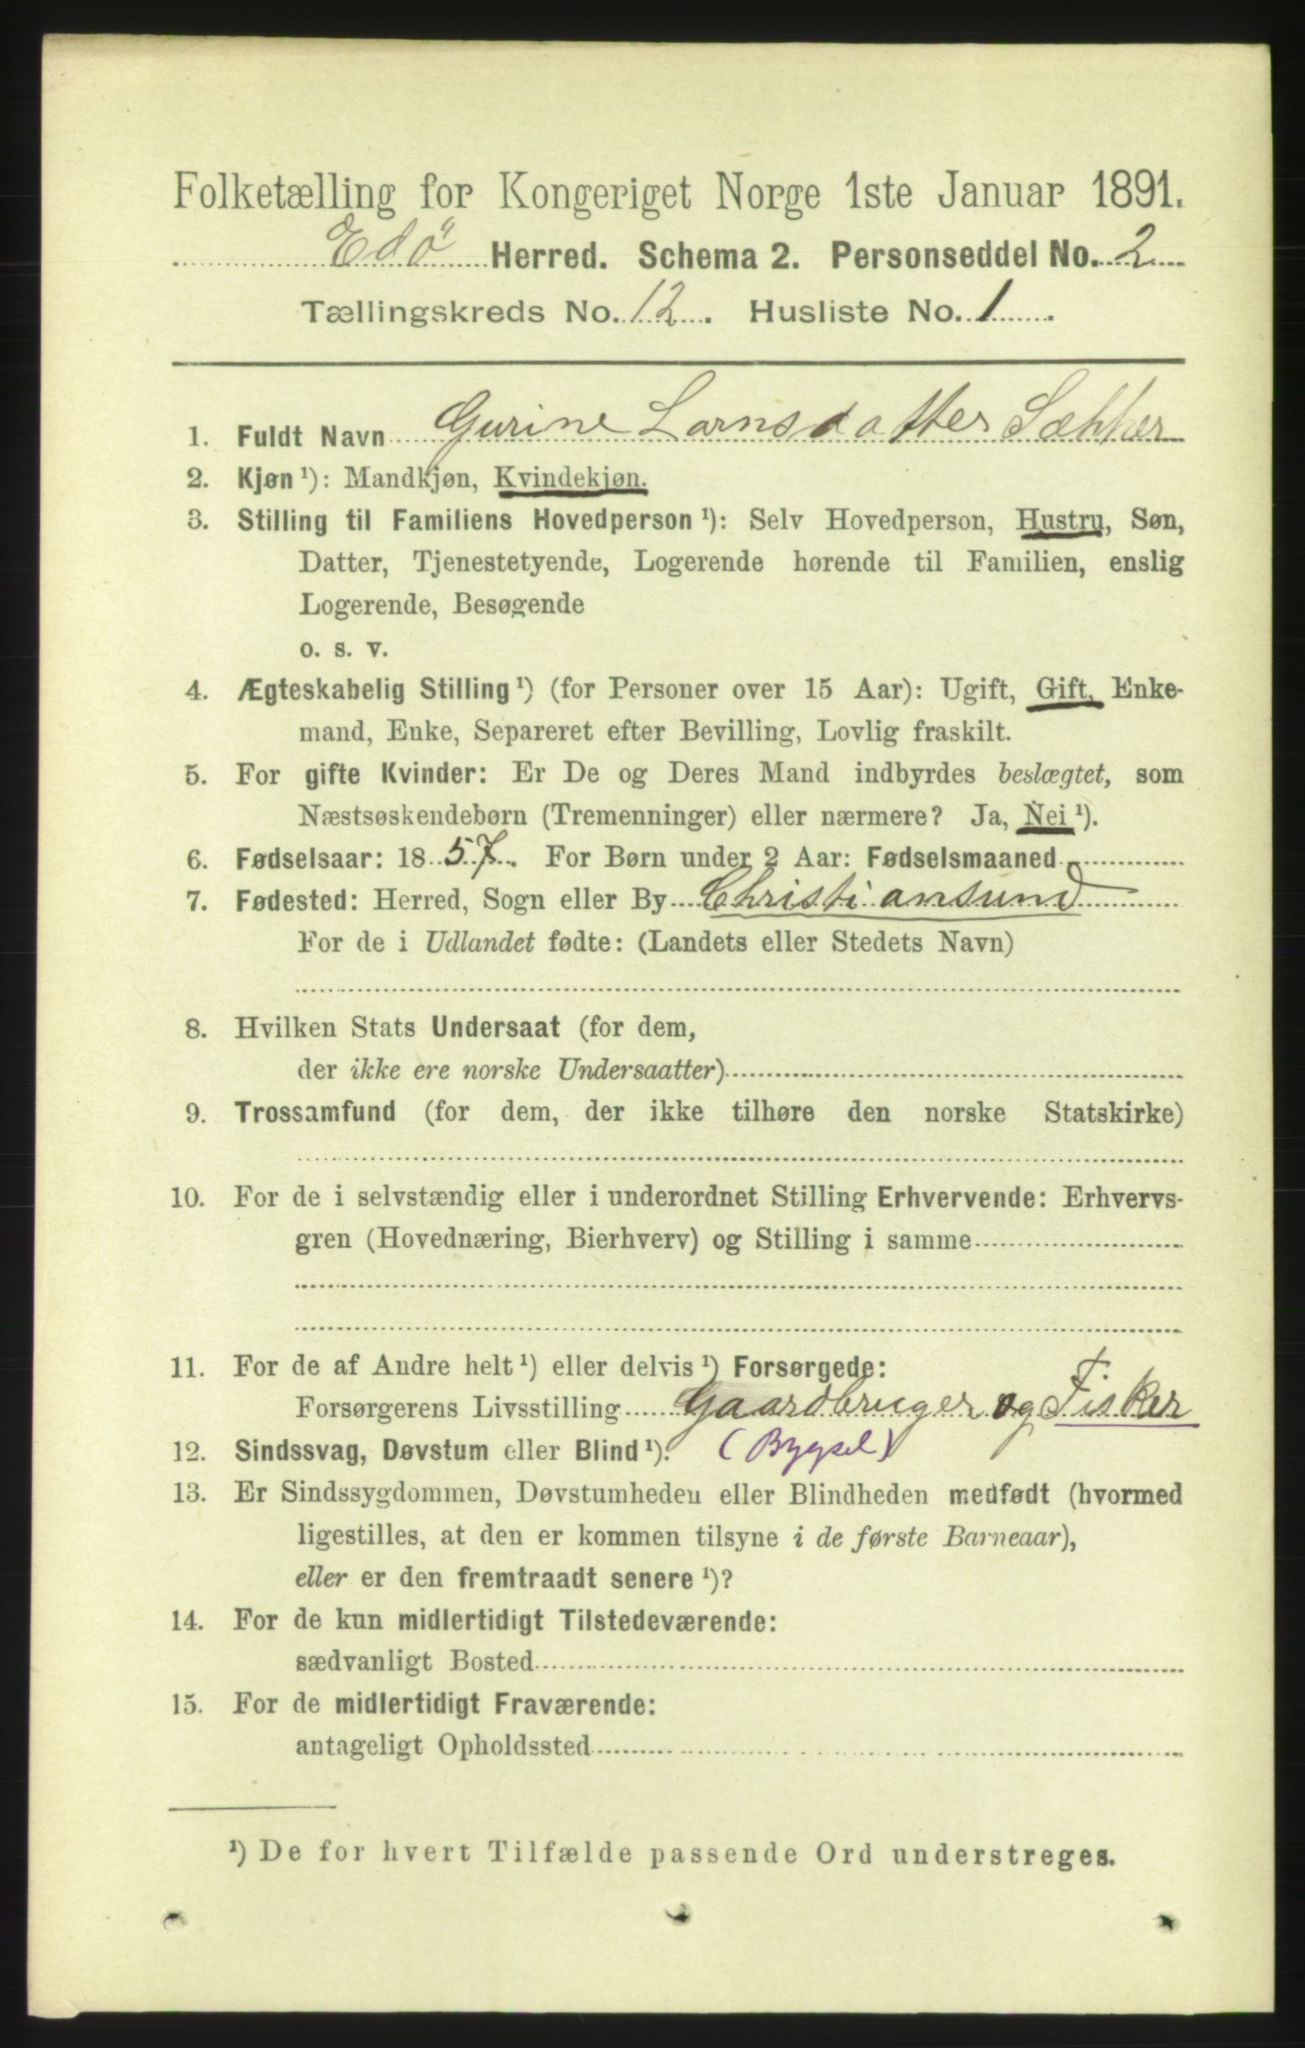 Folketælling for Kongeriget Norge 1ste Januar 1891.
Edø Herred. Schema 2. Personseddel No. 2
Tællingskreds No. 12. Husliste No. 1.
1. Fuldt Navn Gurine Larnsdatter Sætter
2. Kjøn ¹): Mandkjøn, Kvindekjøn.
3. Stilling til Familiens Hovedperson ¹): Selv Hovedperson, Hustru, Søn,
Datter, Tjenestetyende, Logerende hørende til Familien, enslig
Logerende, Besøgende
o. s. v.
4. Ægteskabelig Stilling ¹) (for Personer over 15 Aar): Ugift, Gift, Enke-
mand, Enke, Separeret efter Bevilling, Lovlig fraskilt.
5. For gifte Kvinder: Er De og Deres Mand indbyrdes beslægtet, som
Næstsøskendebørn (Tremenninger) eller nærmere? Ja, Nei ¹).
6. Fødselsaar: 1857. For Børn under 2 Aar: Fødselsmaaned
7. Fødested: Herred, Sogn eller By Christiansund
For de i Udlandet fødte: (Landets eller Stedets Navn)
8. Hvilken Stats Undersaat (for dem,
der ikke ere norske Undersaatter)
9. Trossamfund (for dem, der ikke tilhøre den norske Statskirke)
10. For de i selvstændig eller i underordnet Stilling Erhvervende: Erhvervs-
gren (Hovednæring, Bierhverv) og Stilling i samme
11. For de af Andre helt ¹) eller delvis ¹) Forsørgede:
Forsørgerens Livsstilling Gaardbruger og Fisker
12. Sindssvag, Døvstum eller Blind ¹). (Bygsel)
13. Er Sindssygdommen, Døvstumheden eller Blindheden medfødt (hvormed
ligestilles, at den er kommen tilsyne i de første Barneaar),
eller er den fremtraadt senere ¹)?
14. For de kun midlertidigt Tilstedeværende:
sædvanligt Bosted
15. For de midlertidigt Fraværende:
antageligt Opholdssted
¹) De for hvert Tilfælde passende Ord understreges.